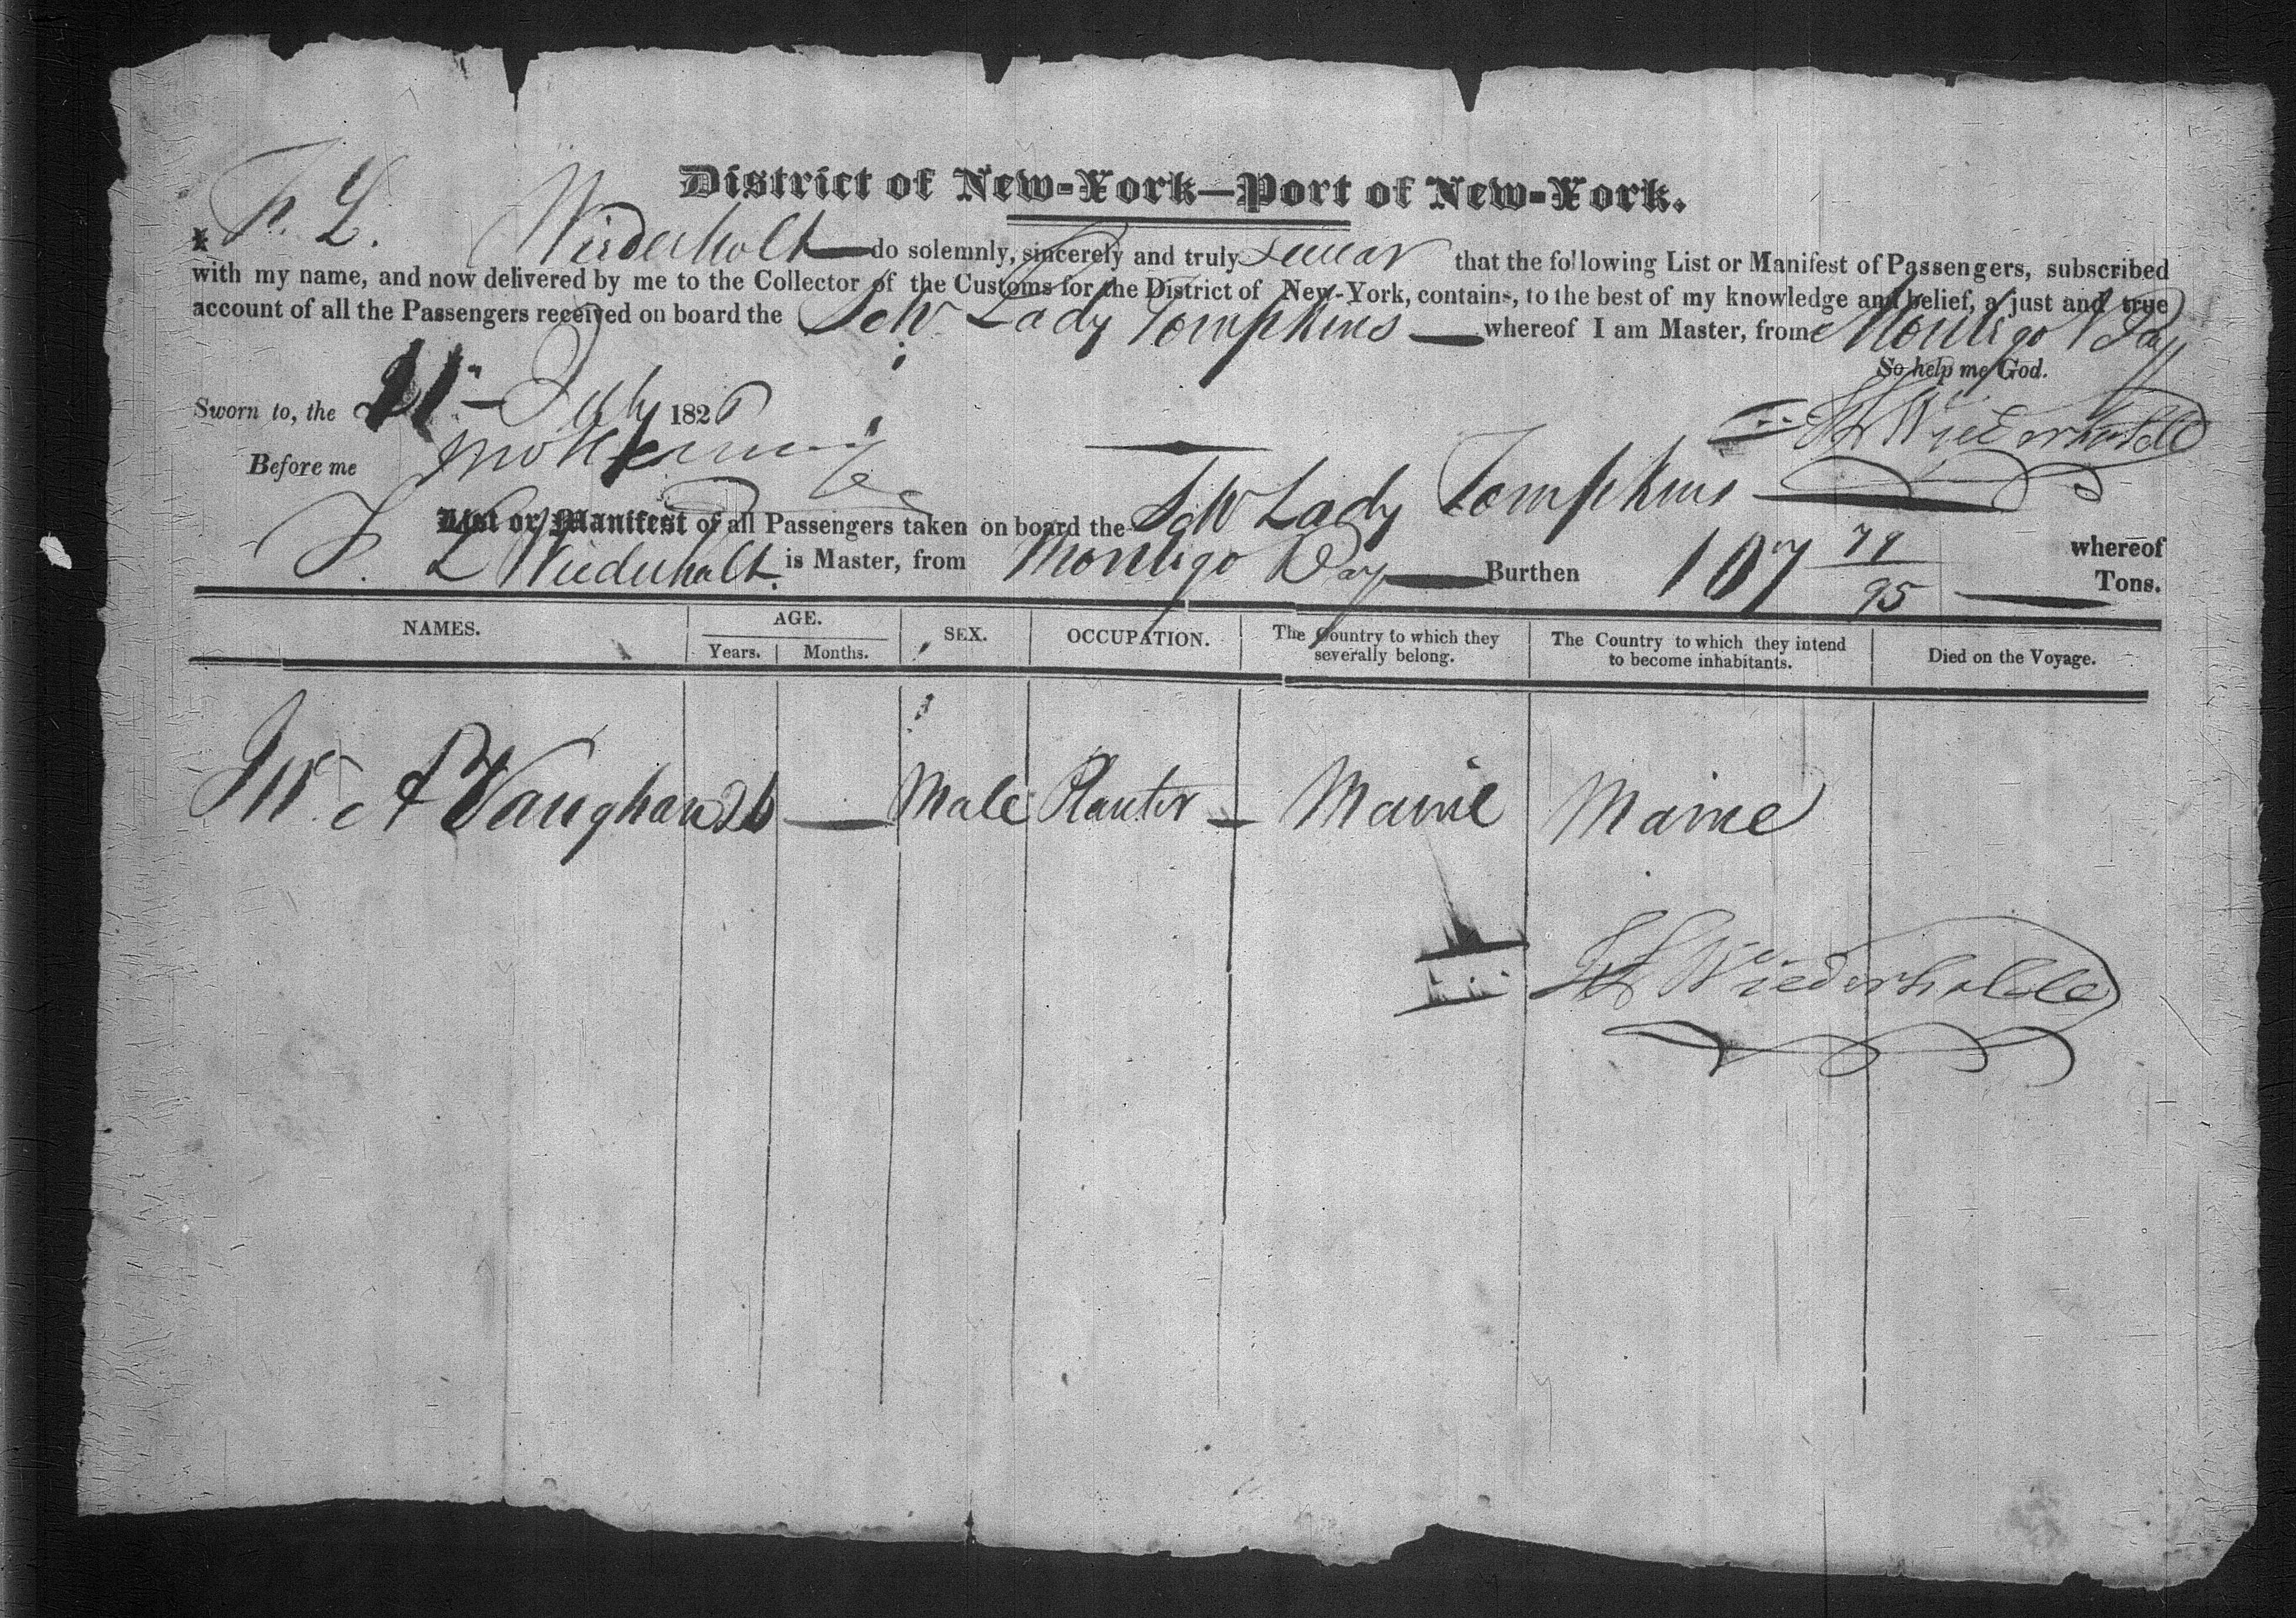 District of New-York—Port of New-York.
I F. L. Wiederholt do solemnly, sincerely and truly swear that the following List or Manifest of Passengers, subscribed
with my name, and now delivered by me to the Collector of the Customs for the District of New-York, contains, to the best of my knowledge and belief, a just and true
account of all the Passengers received on board the Schr Lady Tompkins whereof I am Master, from Montego Bay
So help me God.
Sworn to, the 21st July 1826
F L Wiederholdt
Before me
List or Manifest of all Passengers taken on board the Schr Lady Tompkins whereof
F. L Wiederholt is Master, from Montego Bay Burthen 107 79/95 Tons.
NAMES. AGE. SEX. OCCUPATION. The Country to which they severally belong. The Country to which they intend to become inhabitants. Died on the Voyage.
Years. Months.
Mr. A Vaughan 26 — Male Planter — Maine Maine
F L Wiederholdt